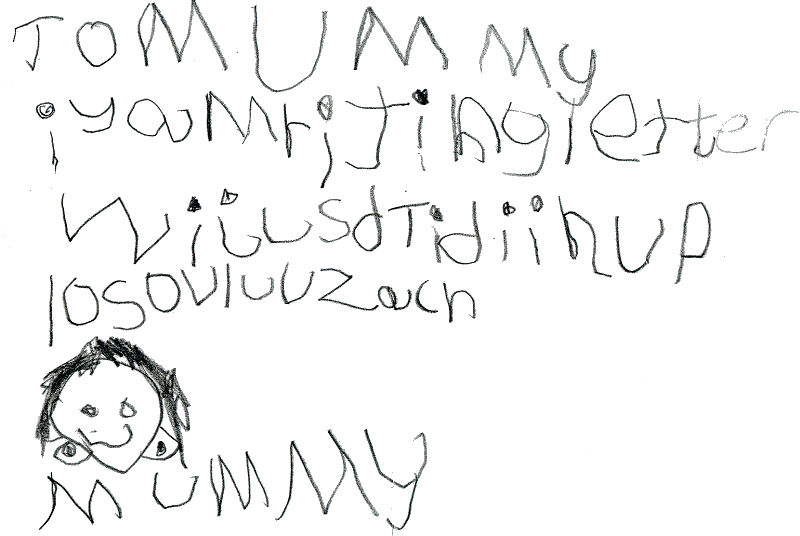 TO MUMMy
i yam rijting letter
will us dTidi in up
lOSOVluvv Zach
MUMMY